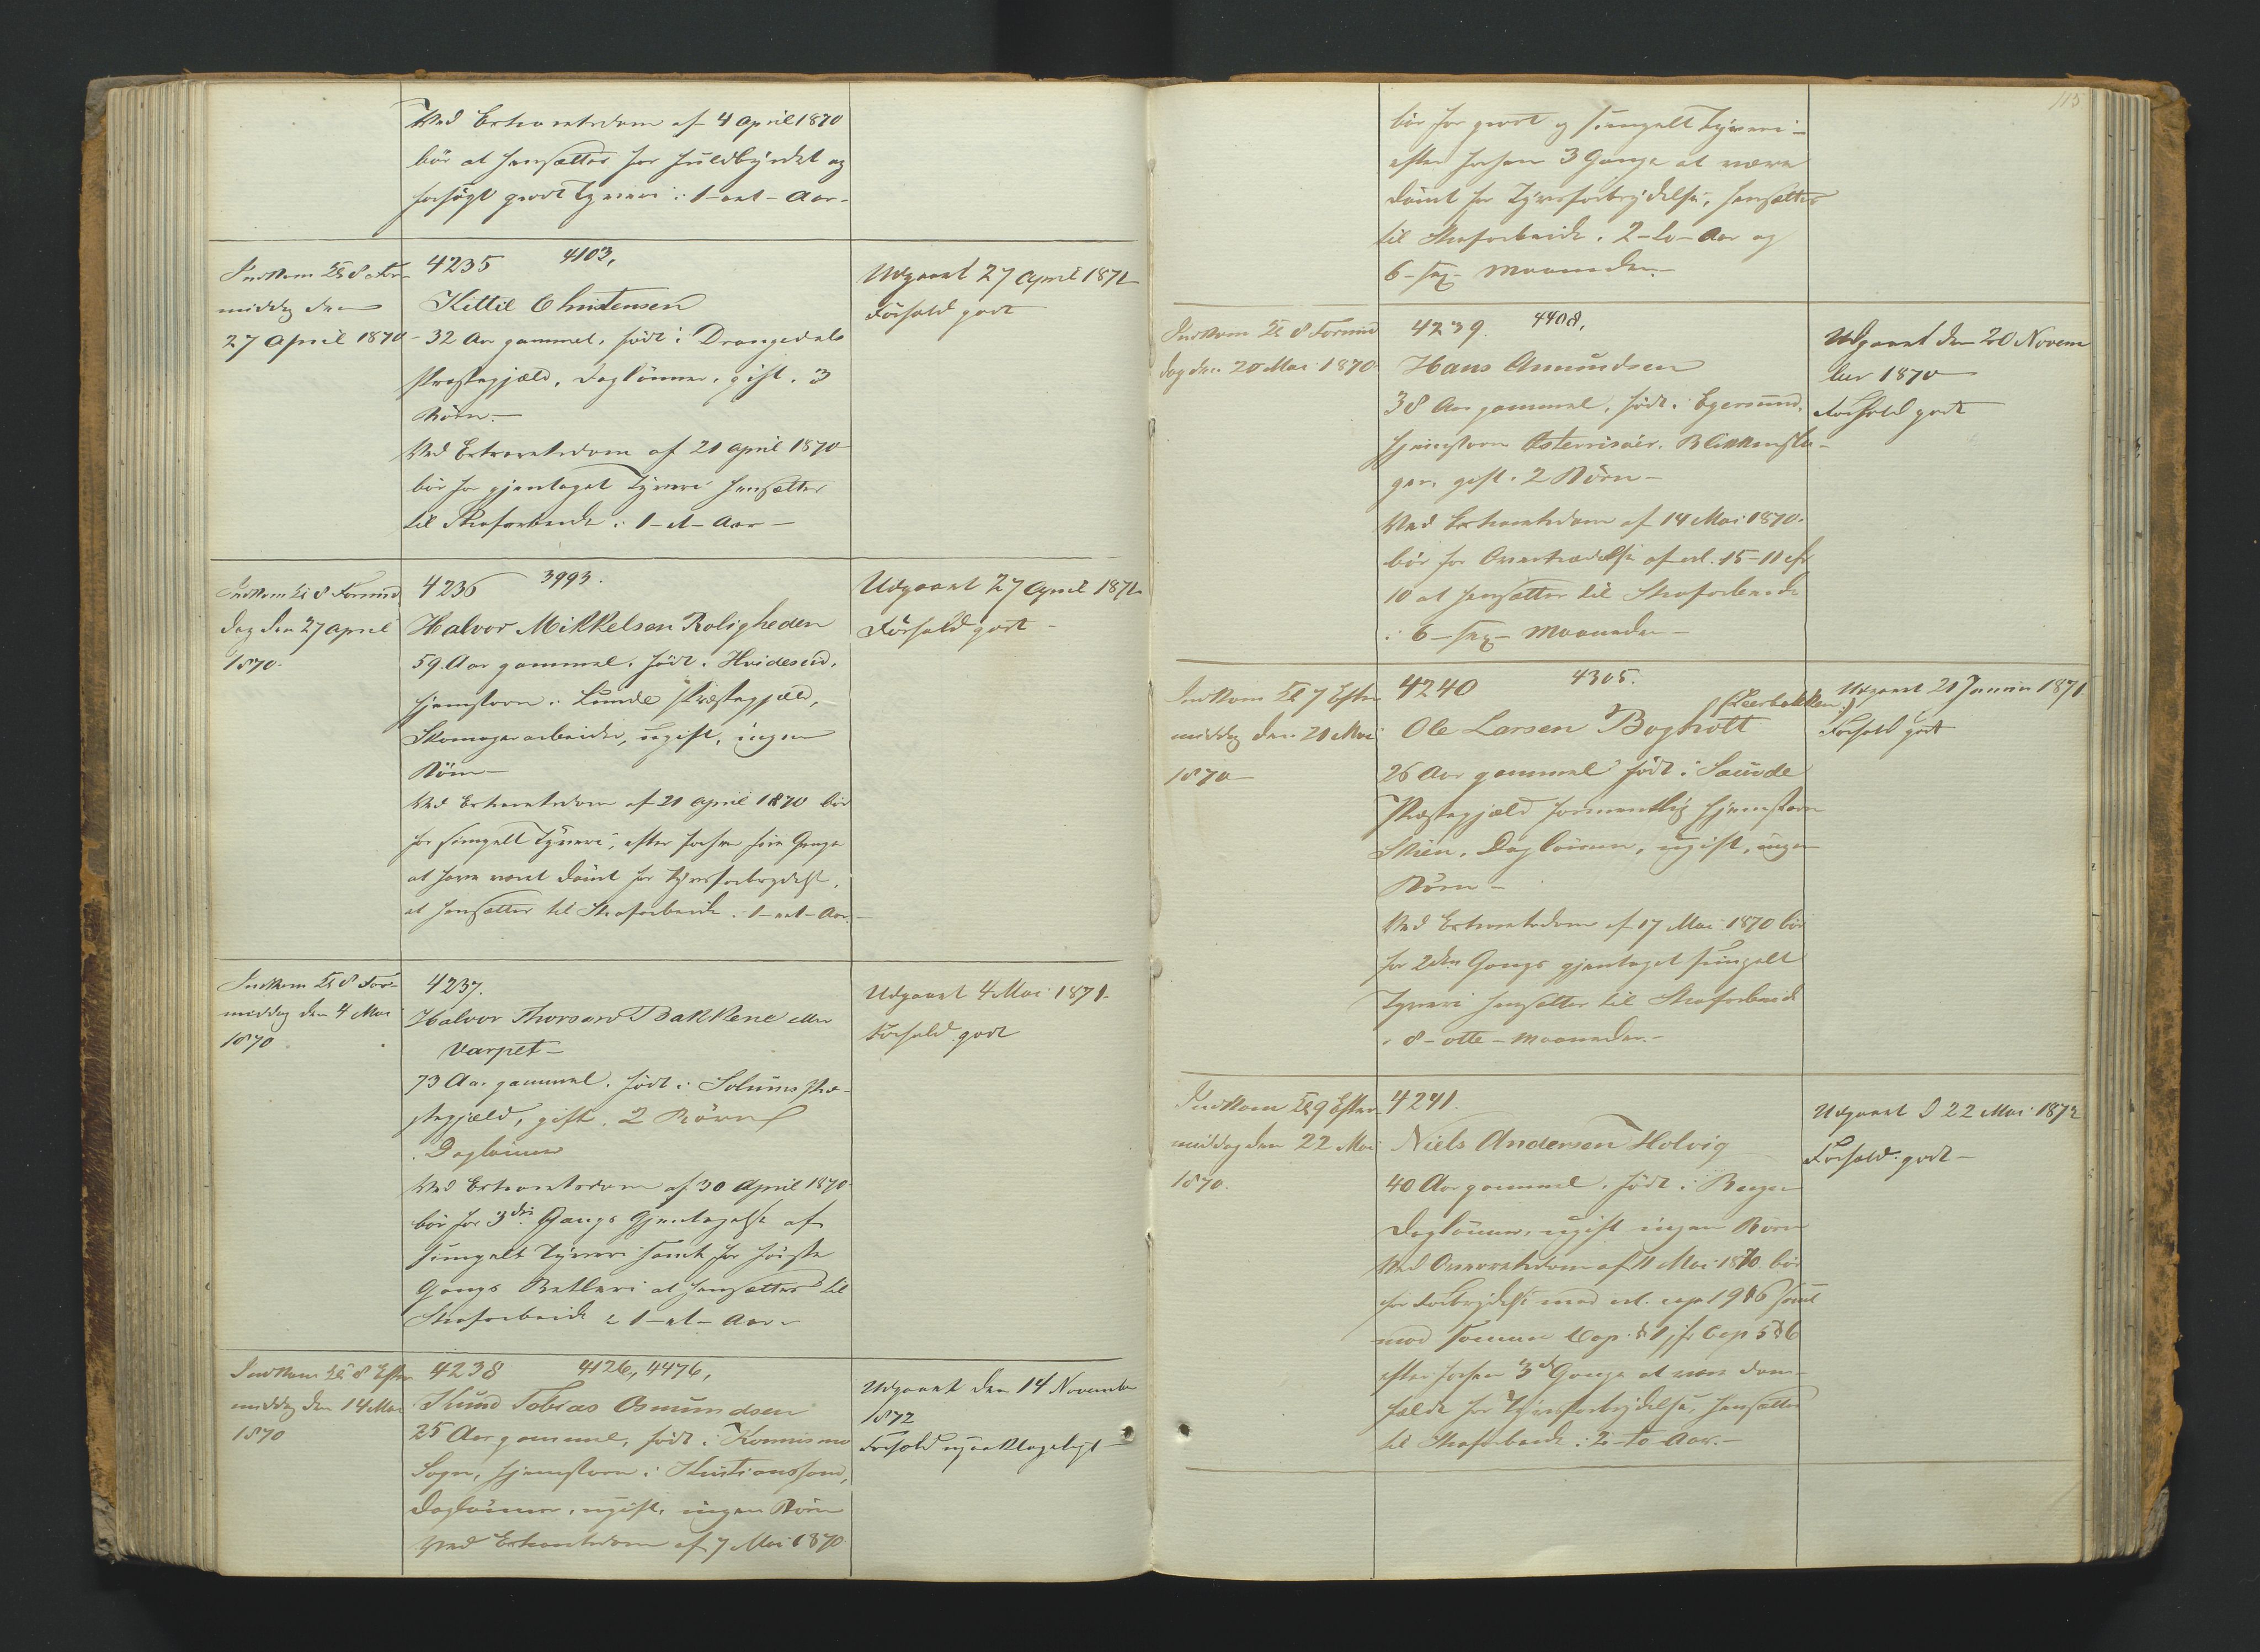 Ved Extraretsdom af 4 April 1870
bör at hensættes for fuldbyrdet og
forsögt grovt Tyveri i 1-eet-Aar-
Indkom Kl 8 For-
middag den
27 April 1870
4235 4103,
Kittil Christensen
32 Aar gammel, födt i Drangedals
Præstegjæld, Daglönner, gift, 3
Börn.-
Ved Extraretsdom af 21 April 1870
bör for gjentaget Tyveri hensættes
til Strafarbeide i 1-et-Aar-
Udgaaet 27 April 1871
Forhold godt
Indkom Kl 8 Formid
dag den 27 April
1870.
4236 3993.
Halvor Mikkelsen Roligheden
59 Aar gammel, födt i Hvideseid,
hjemstavn i Lunde Præstegjæld,
Skomagerarbeider, ugift, ingen
Börn-
Ved Extraretsdom af 21 April 1870 bör
for simpelt Tyveri, efter forhen fire Gange
at have været dömt for Tyvsforbrydelse,
at hensættes til Strafarbeide i 1-eet-Aar.-
Udgaaet 27 April 1871
Forhold godt-
Indkom Kl 8 For-
middag den 4 Mai
1870
4237.
Halvor Thorsen Bakkene eller
Varpet-
73 Aar gammel, födt i Solums Præ-
stegjæld, gift, 2 Börn
Daglönner
Ved Extraretsdom af 30 April 1870
bör for 3die Gangs Gjentagelse af
simpelt Tyveri samt for förste
Gangs Betleri at hensættes til
Strafarbeide i 1-et-Aar-
Udgaaet 4 Mai 1871.
Forhold godt
Indkom Kl 8 Efter
middag den 14 Mai
1870
4238 4126, 4476,
Knud Tobias Osmundsen
25 Aar gammel, födt i Konnismo
Sogn, hjemstavn i Kristianssand,
Daglönner, ugift, ingen Börn
Ved Extraretsdom af 7 Mai 1870
Udgaaet den 14 November
1872
Forhold upaaklageligt-
115
bör for grovt og simpelt Tyveri-
efter forhen 3 Gange at være
dömt for Tyvsforbrydelse, hensættes
til Strafarbeide i 2-to-Aar og
6-sex-Maaneder.-
Indkom Kl 8 Formid
dag den 20 Mai 1870.
4239. 4408,
Hans Amundsen
38 Aar gammel, födt i Egersund,
hjemstavn Österrisöer, Blikkensla-
ger, gift, 2 Börn-
Ved Extraretsdom af 14 Mai 1870.
bör for Overtrædelse af crl. 15-11 cfr
10 at hensættes til Strafarbeide
i 6-sex-Maaneder-
Udgaaet den 20 Novem
ber 1870
Forhold godt
Indkom Kl 7 Efter
middag den 21 Mai
1870-
4240 4305.
(Leerbakken)
Ole Larsen Bogholt
26 Aar gammel födt i Saude
Præstegjæld formentlig hjemstavn
Skien, Daglönner, ugift, ingen
Börn-
Ved Extraretsdom af 17 Mai 1870 bör
for 2den Gangs gjentaget simpelt
Tyveri hensættes til Strafarbeid
i 8-otte-Maaneder.-
Udgaaet 21 Januar 1871.
Forhold godt
Indkom Kl 9 Efter
middag den 22 Mai
1870.
4241.
Niels Andersen Holvig
40 Aar gammel, födt i Bergen
Daglönner, ugift ingen Börn
Ved Overretsdom af 11 Mai 1870 bör
for Forbrydelse mod crl. cap 19 § 6 samt
mod samme Cap. § 1 jfr Cap 5 § 6
efter forhen 3 Gange at være dom-
fældt for Tyvsforbrydelse, hensættes
til Strafarbeide i 2-to-Aar.-
Udgaaet d 22 Mai 1872
Forhold godt-